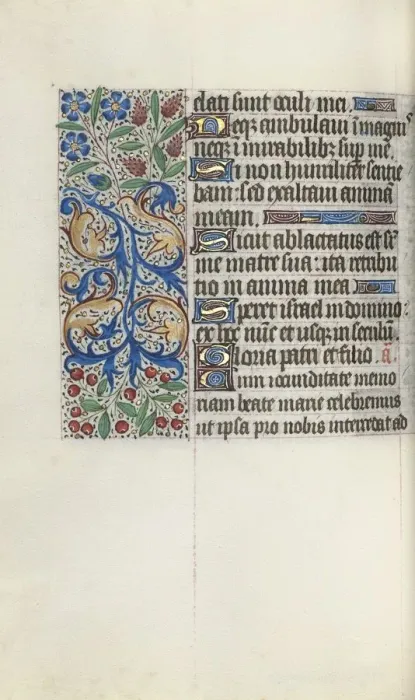 elati sunt oculi mei
Neq; ambulaui i magnis
neq; i mirabilib; sup me.
Si non humiliter sentie
bam: sed exaltaui animā
meam.
Sicut ablactatus est sr̄
me matre sua: ita retribu
tio in anima mea
Speret israel in domino:
ex hoc nūc et usq; in seculū.
Gloria patri et filio. ā.
Cum iocunditate memo
riam beate marie celebremus
ut ipsa pro nobis intercedat ad